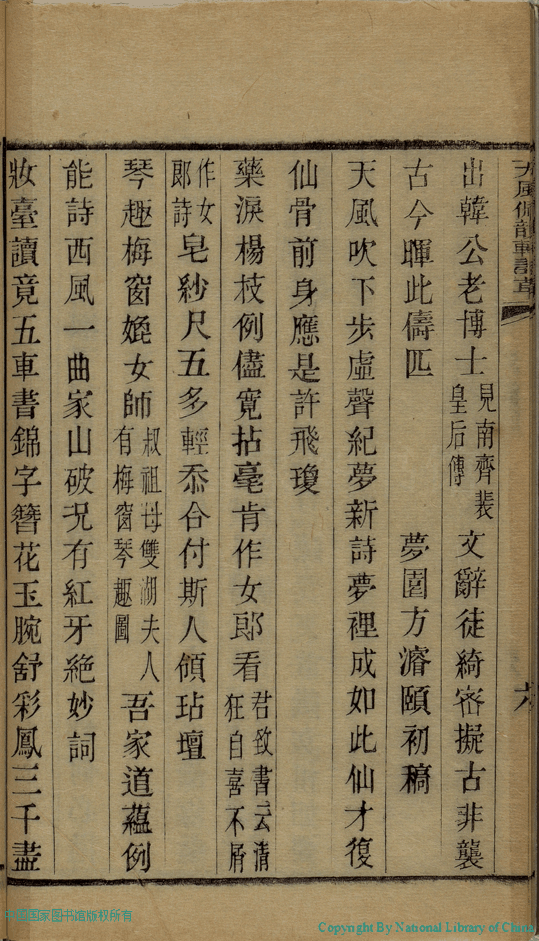 天風佩韻軒詩草
六
出韓公老博士見南齊裴皇后傳文辭徒綺密擬古非襲
古今暉此儔匹 夢園方濬頤初稿
天風吹下步虛聲紀夢新詩夢裡成如此仙才復
仙骨前身應是許飛瓊
藥淚楊枝例儘寬拈毫肯作女郎看君致書云清狂自喜不屑
作女郎詩皂紗尺五多輕忝合付斯人傾玷壇
琴趣梅窗㛹女師叔祖母雙湖夫人有梅窗琴趣圖吾家道蘊例
能詩西風一曲家山破況有紅牙絕妙詞
妝臺讀竟五車書錦字簪花玉腕舒彩鳳三千盡
中国国家图书馆版权所有
Copyright By National Library of China